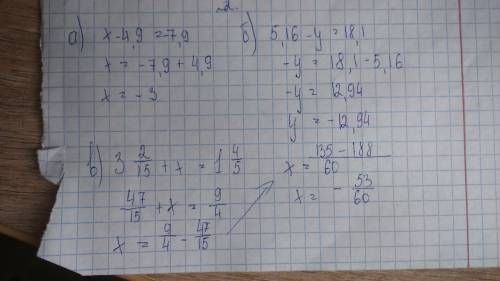 2.
а) x - 4,9 = -7,9
x = -7,9 + 4,9
x = -3
б) 5,16 - y = 18,1
-y = 18,1 - 5,16
-y = 12,94
y = -12,94
в) 3 2/15 + x = 1 4/5
47/15 + x = 9/4
x = 9/4 - 47/15
x = 135 - 188/60
x = - 53/60